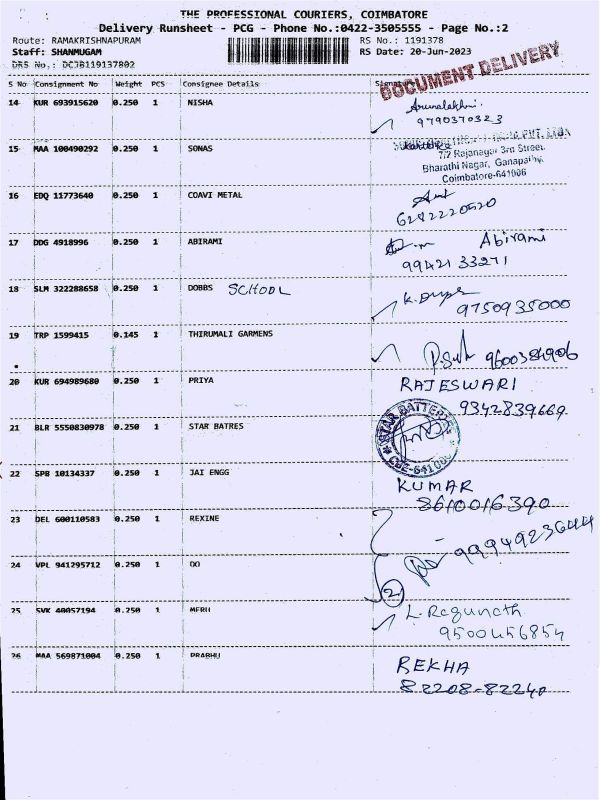 THE PROFESSIONAL COURIERS, COIMBATORE
Delivery Runsheet - PCG - Phone No.:0422-3505555 - Page No.:2
Route: RAMAKRISHNAPURAM RS No.: 1191378
Staff: SHANMUGAM RS Date: 20-Jun-2023
DRS No.: DCJB119137802
DOCUMENT DELIVERY
S No Consignment No Weight PCS Consignee Details Signature
14 KUR 693915620 0.250 1 NISHA
9790370323
15 MAA 100490292 0.250 1 SONAS
7/2 Rajanagar 3rd Street,
Bharathi Nagar, Ganapathy,
Coimbatore-641006
16 EDQ 11773640 0.250 1 COAVI METAL
6282220520
17 DDG 4918996 0.250 1 ABIRAMI Abirami
99421 33271
18 SLM 322288658 0.250 1 DOBBS SCHOOL
9750935000
19 TRP 1599415 0.145 1 THIRUMALI GARMENS
9600384906
20 KUR 694989680 0.250 1 PRIYA RAJESWARI
9342839669
21 BLR 5550830978 0.250 1 STAR BATRES
STAR BATTERIES
CBE-641006
22 SPB 10134337 0.250 1 JAI ENGG KUMAR
8610016390
23 DEL 600110583 0.250 1 REXINE
9994923644
24 VPL 941295712 0.250 1 DO
2
25 SVK 40057194 0.250 1 MERU L. Regunath
9500456854
26 MAA 569871004 0.250 1 PRABHU REKHA
82208-82240